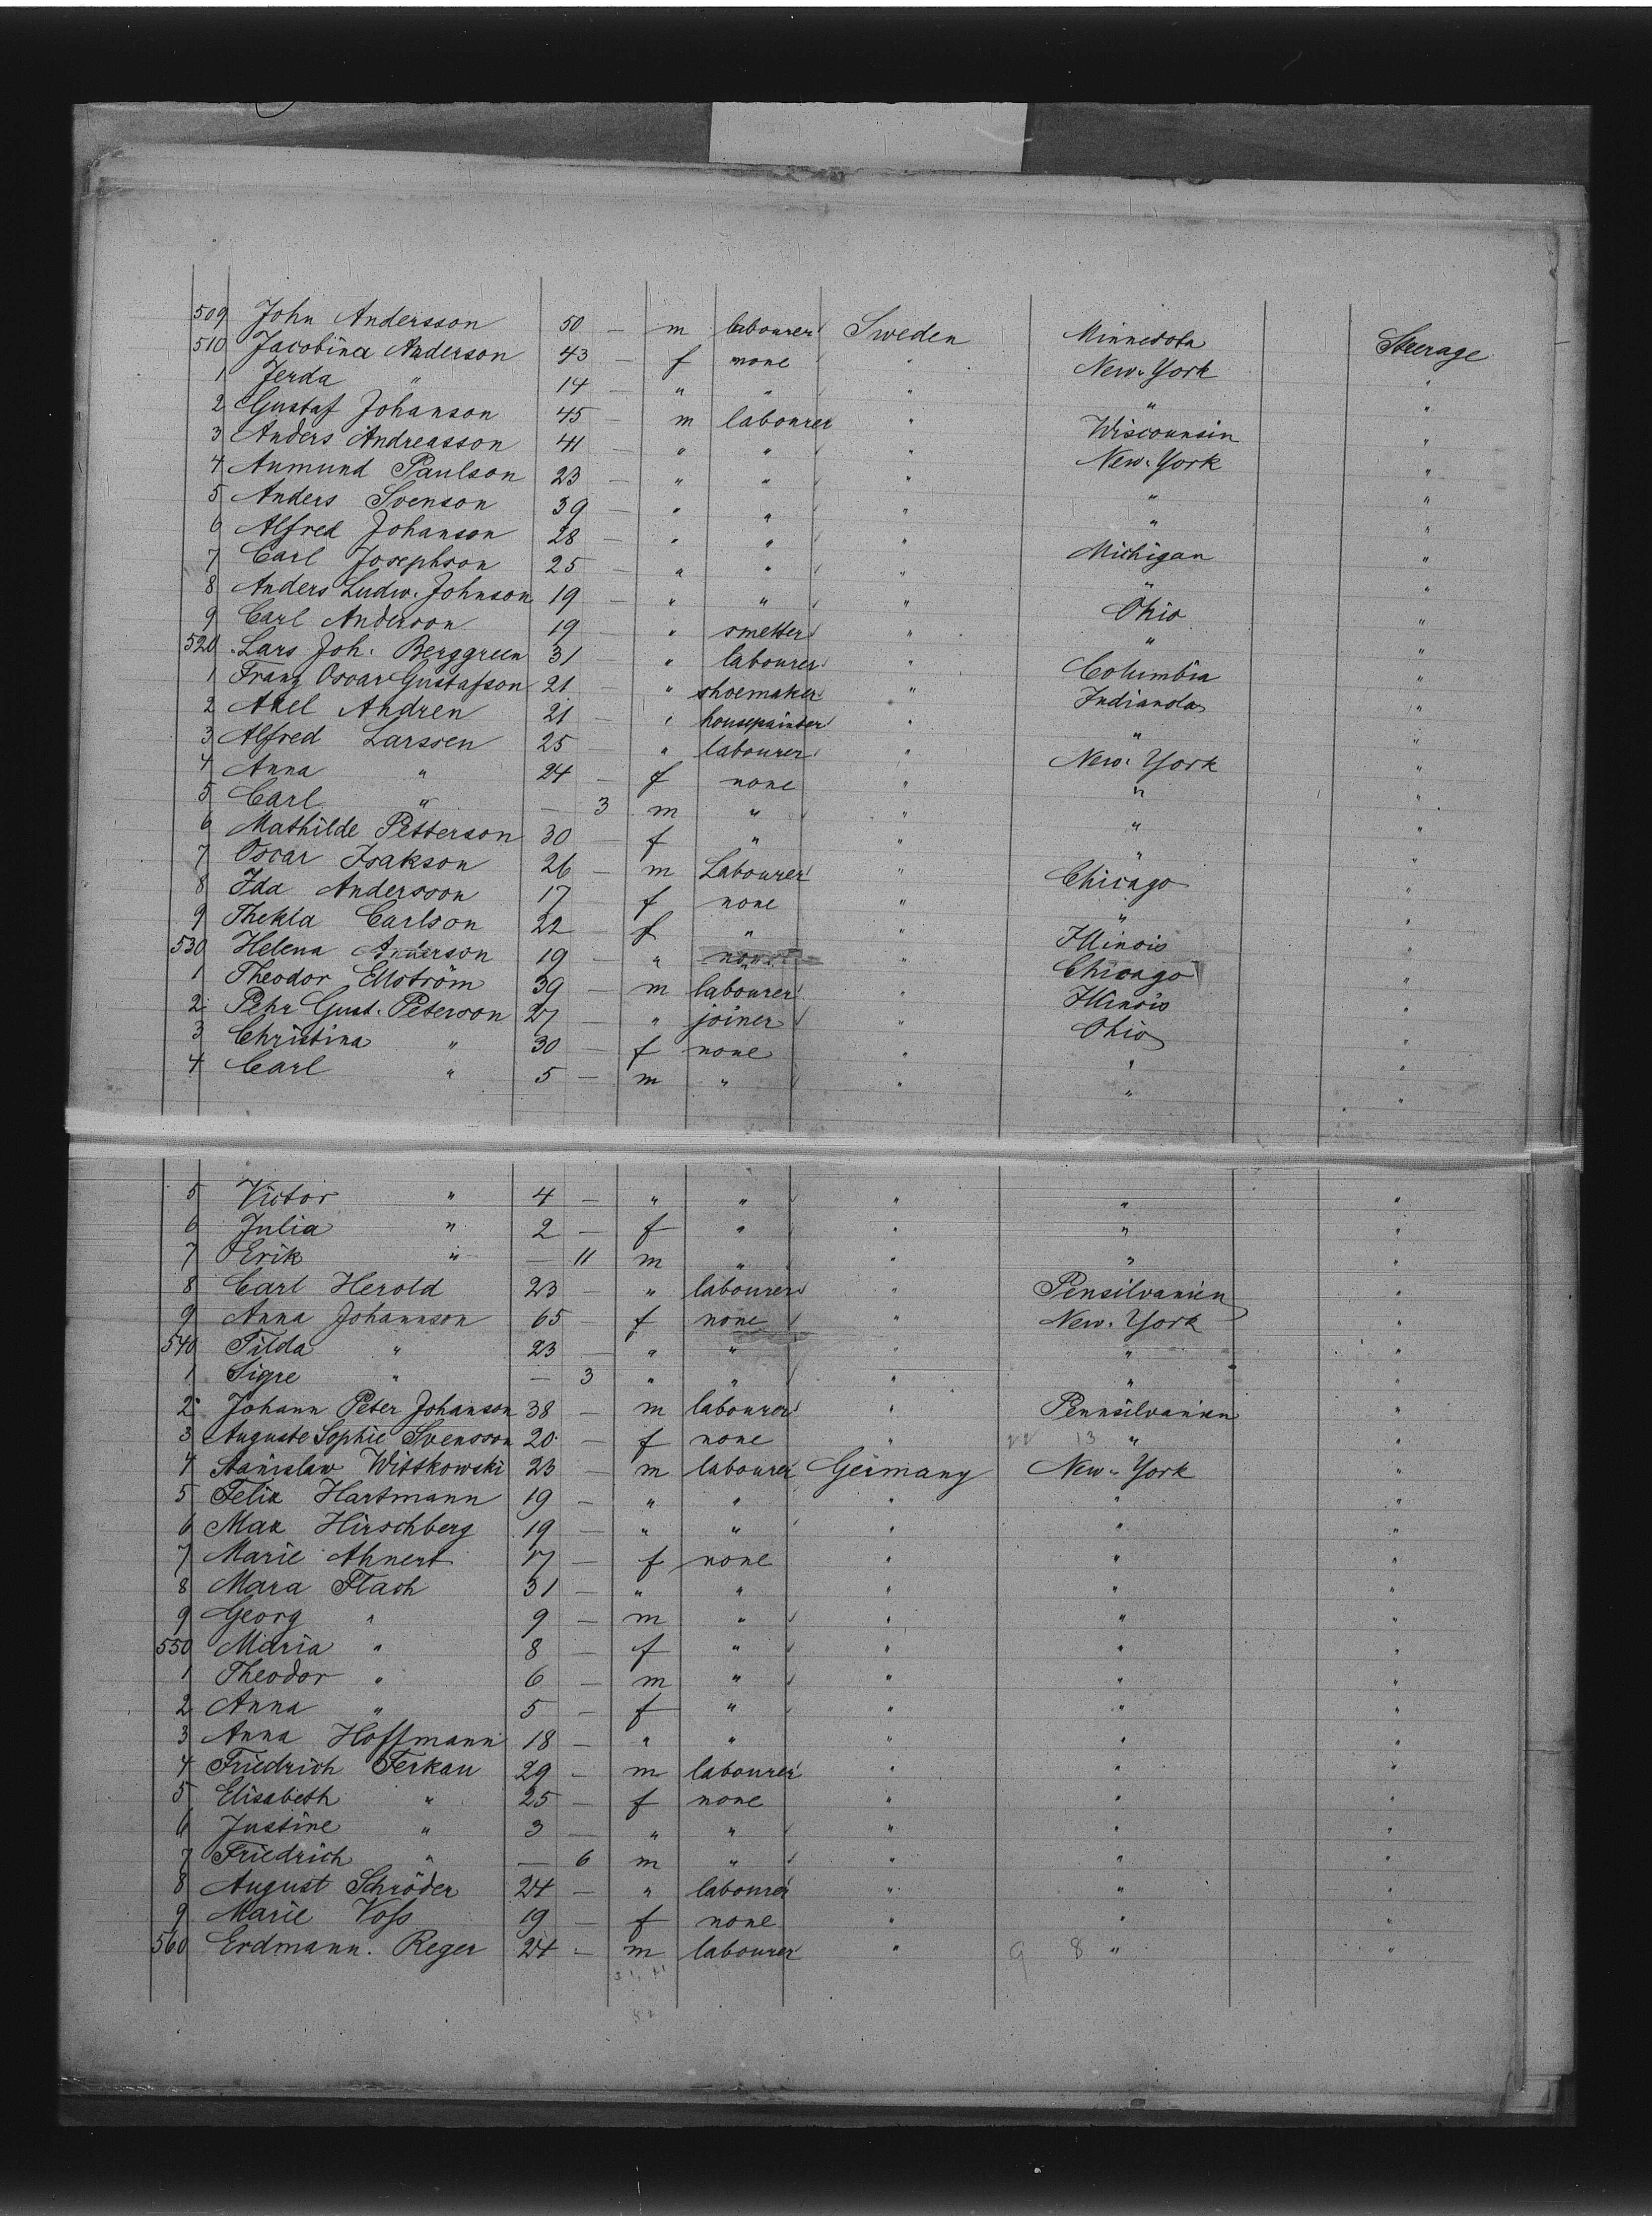 509 John Andersson 50 — m labourer Sweden Minnesota Steerage
510 Jacobina Anderson 43 — f none " New-York "
1 Jerda " 14 — " " " " "
2 Gustaf Johanson 45 — m labourer " Wiscounsin "
3 Anders Andreasson 41 — " " " New-York "
4 Anmund Paulson 23 — " " " " "
5 Anders Svenson 39 — " " " " "
6 Alfred Johanson 28 — " " " Michigan "
7 Carl Josephson 25 — " " " " "
8 Anders Ludw. Johnson 19 — " " " Ohio "
9 Carl Anderson 19 — " smetter " " "
520 Lars Joh. Berggreen 31 — " labourer " Columbia "
1 Franz Oscar Gustafson 21 — " shoemaker " Indianola "
2 Axel Andren 21 — " housepainter " " "
3 Alfred Larssen 25 — " labourer " New-York "
4 Anna " 24 — f none " " "
5 Carl " — 3 m " " " "
6 Mathilde Petterson 30 — f " " " "
7 Oscar Isakson 26 — m Labourer " Chicago "
8 Ida Andersson 17 — f none " " "
9 Thekla Carlson 22 — f " " Illinois "
530 Helena Anderson 19 — " none " Chicago "
1 Theodor Ellström 39 — m labourer " Illinois "
2 Pehr Gust. Peterson 27 — " joiner " Ohio "
3 Christina " 30 — f none " " "
4 Carl " 5 — m " " " "
5 Victor " 4 — " " " " "
6 Julia " 2 — f " " " "
7 Erik " — 11 m " " " "
8 Carl Herold 23 — " labourer " Pensilvanien "
9 Anna Johannson 65 — f none " New-York "
540 Tilda " 23 — " " " " "
1 Sigre " — 3 " " " " "
2 Johann Peter Johanson 38 — m labourer " Pennsilvanien "
3 Auguste Sophie Svensson 20 — f none " 22 13 " "
4 Stanislaw Wittkowski 23 — m labourer Germany New-York "
5 Felix Hartmann 19 — " " " " "
6 Max Hirschberg 19 — " " " " "
7 Marie Ahnert 17 — f none " " "
8 Mara Flach 31 — " " " " "
9 Georg " 9 — m " " " "
550 Maria " 8 — f " " " "
1 Theodor " 6 — m " " " "
2 Anna " 5 — f " " " "
3 Anna Hoffmann 18 — " " " " "
4 Friedrich Ferkau 29 — m labourer " " "
5 Elisabeth " 25 — f none " " "
6 Justine " 3 — " " " " "
7 Friedrich " — 6 m " " " "
8 August Schröder 24 — " labourer " " "
9 Marie Voß 19 — f none " " "
560 Erdmann. Reger 24 — m labourer " 9 8 " "